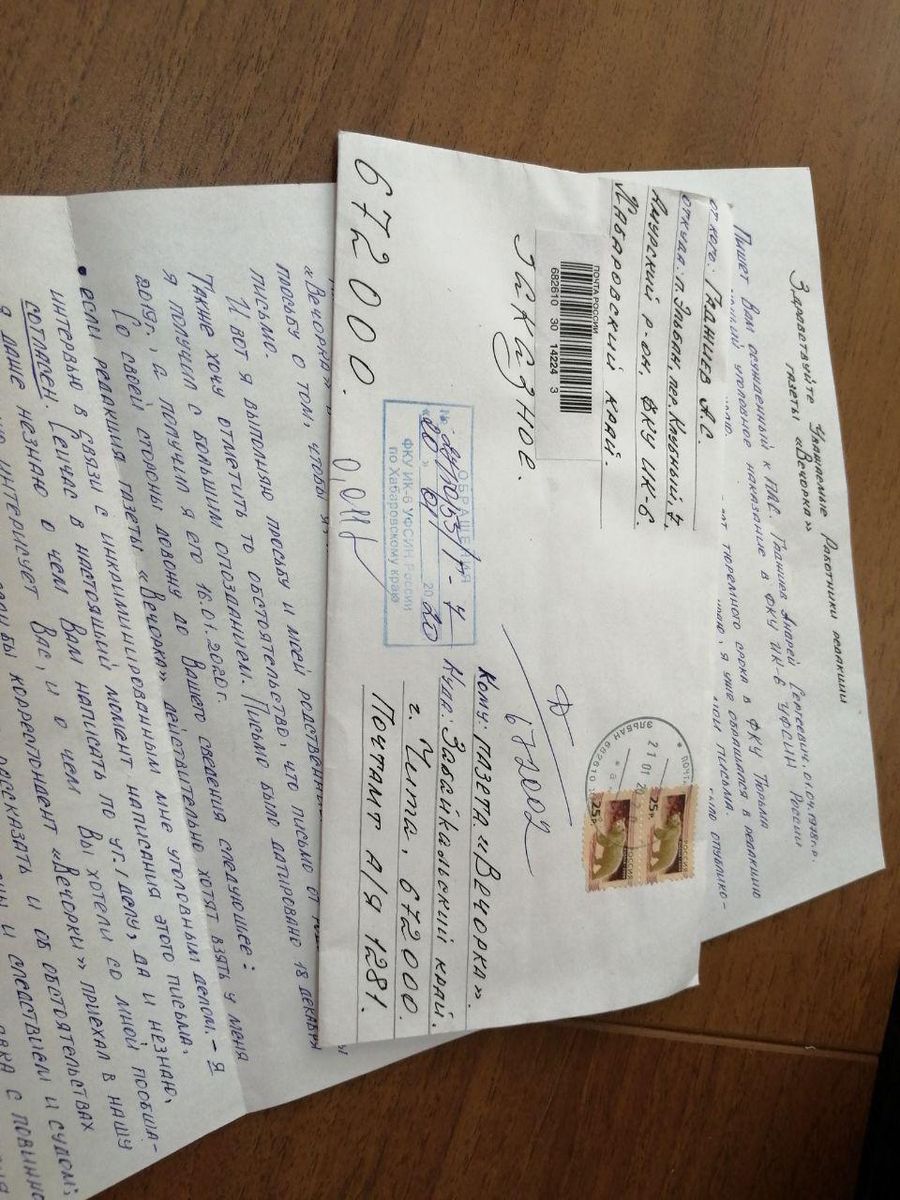 Здравствуйте Уважаемые Работники редакции
газеты «Вечорка»
Пишет Вам осужденный к ПЛС. Гадниев Андрей Сергеевич. 01.04.1978г.р.
уголовное наказание в ФКУ ИК-6 УФСИН России
тюремного срока в ФКУ Тюрьма
я уже обращался в редакцию
письма.
опублико-
от кого: Гадниев А.С.
откуда: п. Эльбан, пер. Клубный, 7.
Амурский р-он, ФКУ ИК-6.
Хабаровский край.
ПОЧТА РОССИИ
682610 30 14224 3
Заказное.
ЭЛЬБАН 682610
ПОЧТ
РОССИЯ
21 01 20
25р.
25р.
672002
ОБРАЩЕНИЯ
№
«20» 01 2020
ФКУ ИК-6 УФСИН России
по Хабаровскому краю
0,011
672000.
Кому: газета. «Вечорка».
Куда: Забайкальский край.
г. Чита, 672000.
Почтамт А/Я 1281.
«Вечорка»
просьбу о том, чтобы я
письмо.
И вот я выполняю просьбу и моей родственни
Также хочу отметить то обстоятельство, что письмо от
я получил с большим опозданием. Письмо было датировано 18 декабря
2019г., а получил я его 16.01.2020г.
Со своей стороны довожу до Вашего сведения следующее:
• если редакция газеты «Вечорка» действительно хотят взять у меня
интервью в связи с инкриминированным мне уголовным делом, - я
согласен. Сейчас в настоящий момент написания этого письма,
я даже незнаю о чем Вам написать по уг/делу, да и незнаю,
интересует Вас, и о чем Вы хотели со мной пообща-
если бы корреспондент «Вечорки» приехал в нашу
рассказать и об обстоятельствах
и следствием и судом;
явка с повинно